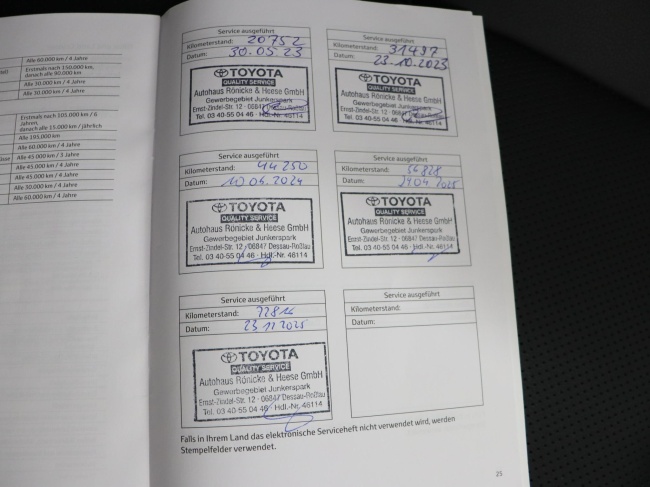 Alle 60.000 km / 4 Jahre
Erstmals nach 150.000 km,
danach alle 90.000 km
Alle 30.000 km / 4 Jahre
Alle 30.000 km / 4 Jahre
Erstmals nach 105.000 km / 6
Jahren,
danach alle 15.000 km / jährlich
Alle 195.000 km
Alle 60.000 km / 4 Jahre
Alle 45.000 km / 3 Jahre
Alle 45.000 km / 4 Jahre
Alle 45.000 km / 4 Jahre
Alle 30.000 km / 4 Jahre
Alle 60.000 km / 4 Jahre
Service ausgeführt
Kilometerstand: 20752
Datum: 30.05.23
TOYOTA
QUALITY SERVICE
Autohaus Rönicke & Heese GmbH
Gewerbegebiet Junkerspark
Ernst-Zindel-Str. 12 · 06847
Tel. 03 40-55 04 46 · Hdl.-Nr. 46114
Service ausgeführt
Kilometerstand: 31497
Datum: 23.10.2023
TOYOTA
QUALITY SERVICE
Autohaus Rönicke & Heese GmbH
Gewerbegebiet Junkerspark
Ernst-Zindel-Str. 12 · 06847 Dessau-Roßlau
Tel. 03 40-55 04 46 · Hdl.-Nr. 46114
Service ausgeführt
Kilometerstand: 44250
Datum: 10.06.2024
TOYOTA
QUALITY SERVICE
Autohaus Rönicke & Heese GmbH
Gewerbegebiet Junkerspark
Ernst-Zindel-Str. 12 · 06847 Dessau-Roßlau
Tel. 03 40-55 04 46 · Hdl.-Nr. 46114
Service ausgeführt
Kilometerstand: 56828
Datum: 29.04.2025
TOYOTA
QUALITY SERVICE
Autohaus Rönicke & Heese GmbH
Gewerbegebiet Junkerspark
Ernst-Zindel-Str. 12 · 06847 Dessau-Roßlau
Tel. 03 40-55 04 46 · Hdl.-Nr. 46114
Service ausgeführt
Kilometerstand: 72814
Datum: 23 12 2025
TOYOTA
QUALITY SERVICE
Autohaus Rönicke & Heese GmbH
Gewerbegebiet Junkerspark
Ernst-Zindel-Str. 12 · 06847 Dessau-Roßlau
Tel. 03 40-55 04 46 · Hdl.-Nr. 46114
Service ausgeführt
Kilometerstand:
Datum:
Falls in Ihrem Land das elektronische Serviceheft nicht verwendet wird, werden
Stempelfelder verwendet.
25